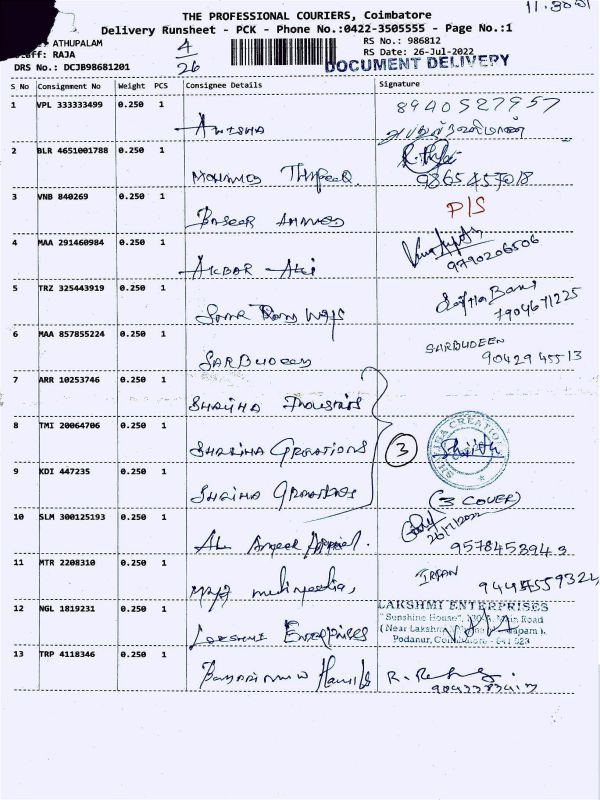 11.30
THE PROFESSIONAL COURIERS, Coimbatore
Delivery Runsheet - PCK - Phone No.:0422-3505555 - Page No.:1
ATHUPALAM
4/26
RS No.: 986812
Staff: RAJA
RS Date: 26-Jul-2022
DRS No.: DCJB98681201
DOCUMENT DELIVERY
S No Consignment No Weight PCS Consignee Details Signature
1 VPL 333333499 0.250 1
8940527957
ANISHA
2 BLR 4651001788 0.250 1
MOHAMED
9865457018
3 VNB 840269 0.250 1
P/S
BASEER AHMED
4 MAA 291460984 0.250 1
AKBAR ALI
9790206506
5 TRZ 325443919 0.250 1
Safha Banu
7904671225
6 MAA 857855224 0.250 1
SARBUDEEN
SARBUDEEN 9042945513
7 ARR 10253746 0.250 1
8 TMI 20064706 0.250 1
3
CREATION
9 KDI 447235 0.250 1
(3 COVER)
10 SLM 300125193 0.250 1
26/7/2022
AL Ameer Apparel.
9578453943
11 MTR 2208310 0.250 1
IRFAN
multimedia,
12 NGL 1819231 0.250 1
LAKSHMI ENTERPRISES
"Sunshine House", Main Road
(Near Lakshmi
Podanur, Coimbatore - 641 023
LAKSHMI ENTERPRISES
13 TRP 4118346 0.250 1
R.